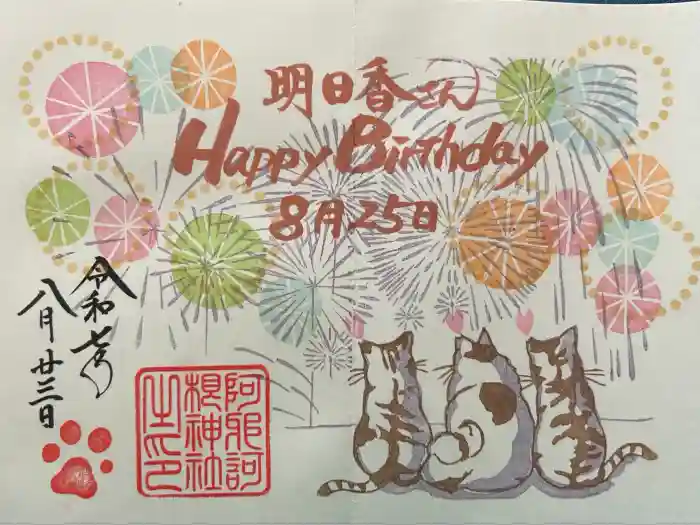 明日香さん
Happy Birthday
8月25日
令和七年
八月廿三日
阿邪訶
根神社
之印